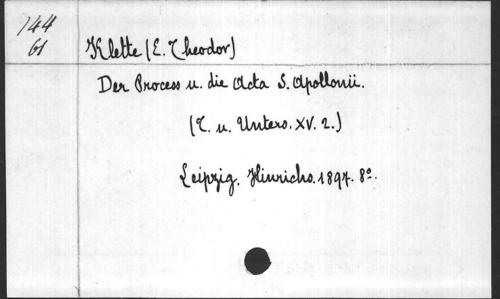 144
61
Klette (E. Theodor)
Der Process u. die Acta S. Apollonii.
(T. u. Unters. XV. 2.)
Leipzig. Hinrichs. 1897. 8º.